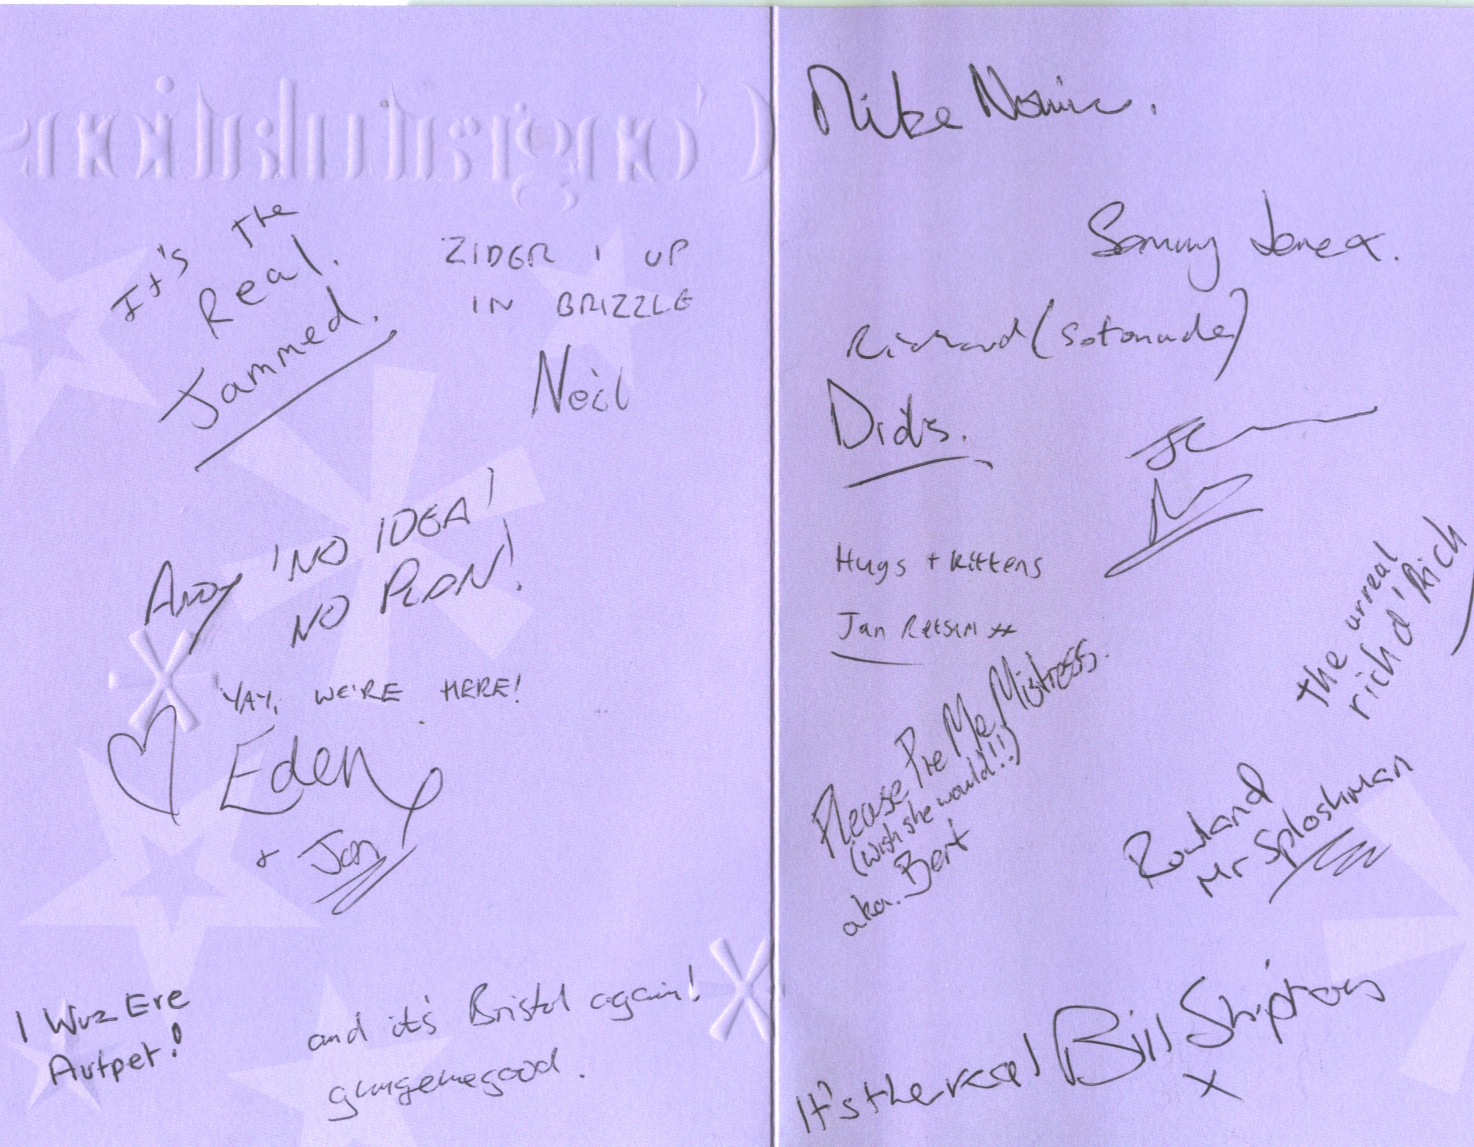 Congratulations
It's the
Real.
Jammed.
ZIDER I UP
IN BRIZZLE
Neil
ANDY 'NO IDEA!
NO PLAN!
YAY, WE'RE HERE!
Eden
+ Jan
I Wuz Ere
Autpet!
and it's Bristol again!
gungemegood.
Mike
Sammy Jane x.
Richard (sotonude)
Dids.
Hugs + kittens
Jan
Please Pie Me Mistress.
(wish she would!!)
aka. Bert
the unreal
rich d' Rich
Rowland
Mr Sploshman
It's the real Bill Shipton
x